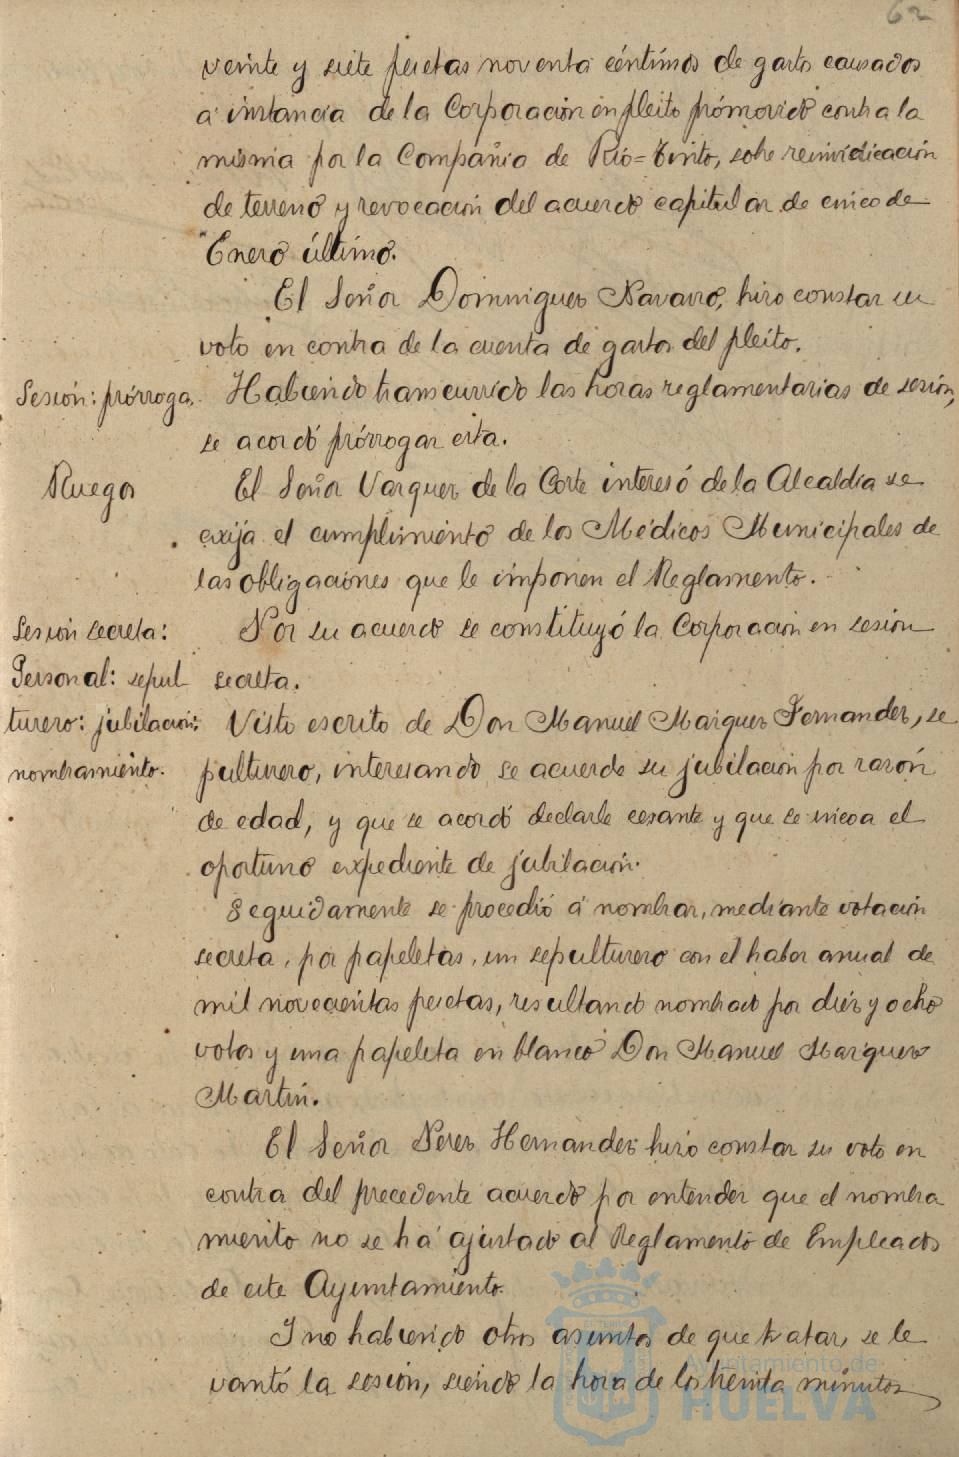 62
veinte y siete pesetas noventa céntimos de gastos causados
á instancia de la Corporación en pleito prómovido contra la
misma por la Compañia de Rio=Tinto, sobre reinvidicación
de terreno y revocación del acuerdo capitular de cinco de
Enero último.
El Señor Dominguez Navarro, hizo constar su
voto en contra de la cuenta de gastos del pleito.
Sesión: prórroga. Habiendo transcurrido las horas reglamentarias de sesión,
se acordó prórrogar esta.
Ruegos El Señor Vazquez de la Corte interesó de la Alcaldia se
exija el cumplimiento de los Médicos Municipales de
las obligaciones que le imponen el Reglamento.
Sesión secreta: Por su acuerdo se constituyó la Corporación en sesión
Personal: sepul secreta.
turero: jubilación: Visto escrito de Don Manuel Marquez Fernandez, se
nombramiento. pulturero, interesando se acuerde su jubilación por razón
de edad, y que se acordó declarle cesante y que se incoa el
oportuno expediente de jubilación.
Seguidamente se procedió á nombrar, mediante votación
secreta, por papeletas, un sepulturero con el haber anual de
mil novecientas pesetas, resultando nombrado por diéz y ocho
votos y una papeleta en blanco Don Manuel Marquez
Martin.
El Señor Perez Hernandez hizo constar su voto en
contra del precedente acuerdo por entender que el nombra
miento no se há ajustado al Reglamento de Empleados
de este Ayuntamiento.
I no habiendo otros asuntos de que tratar, se le
vantó la sesión, siendo la hora de los treinta minutos
Ayuntamiento de
HUELVA